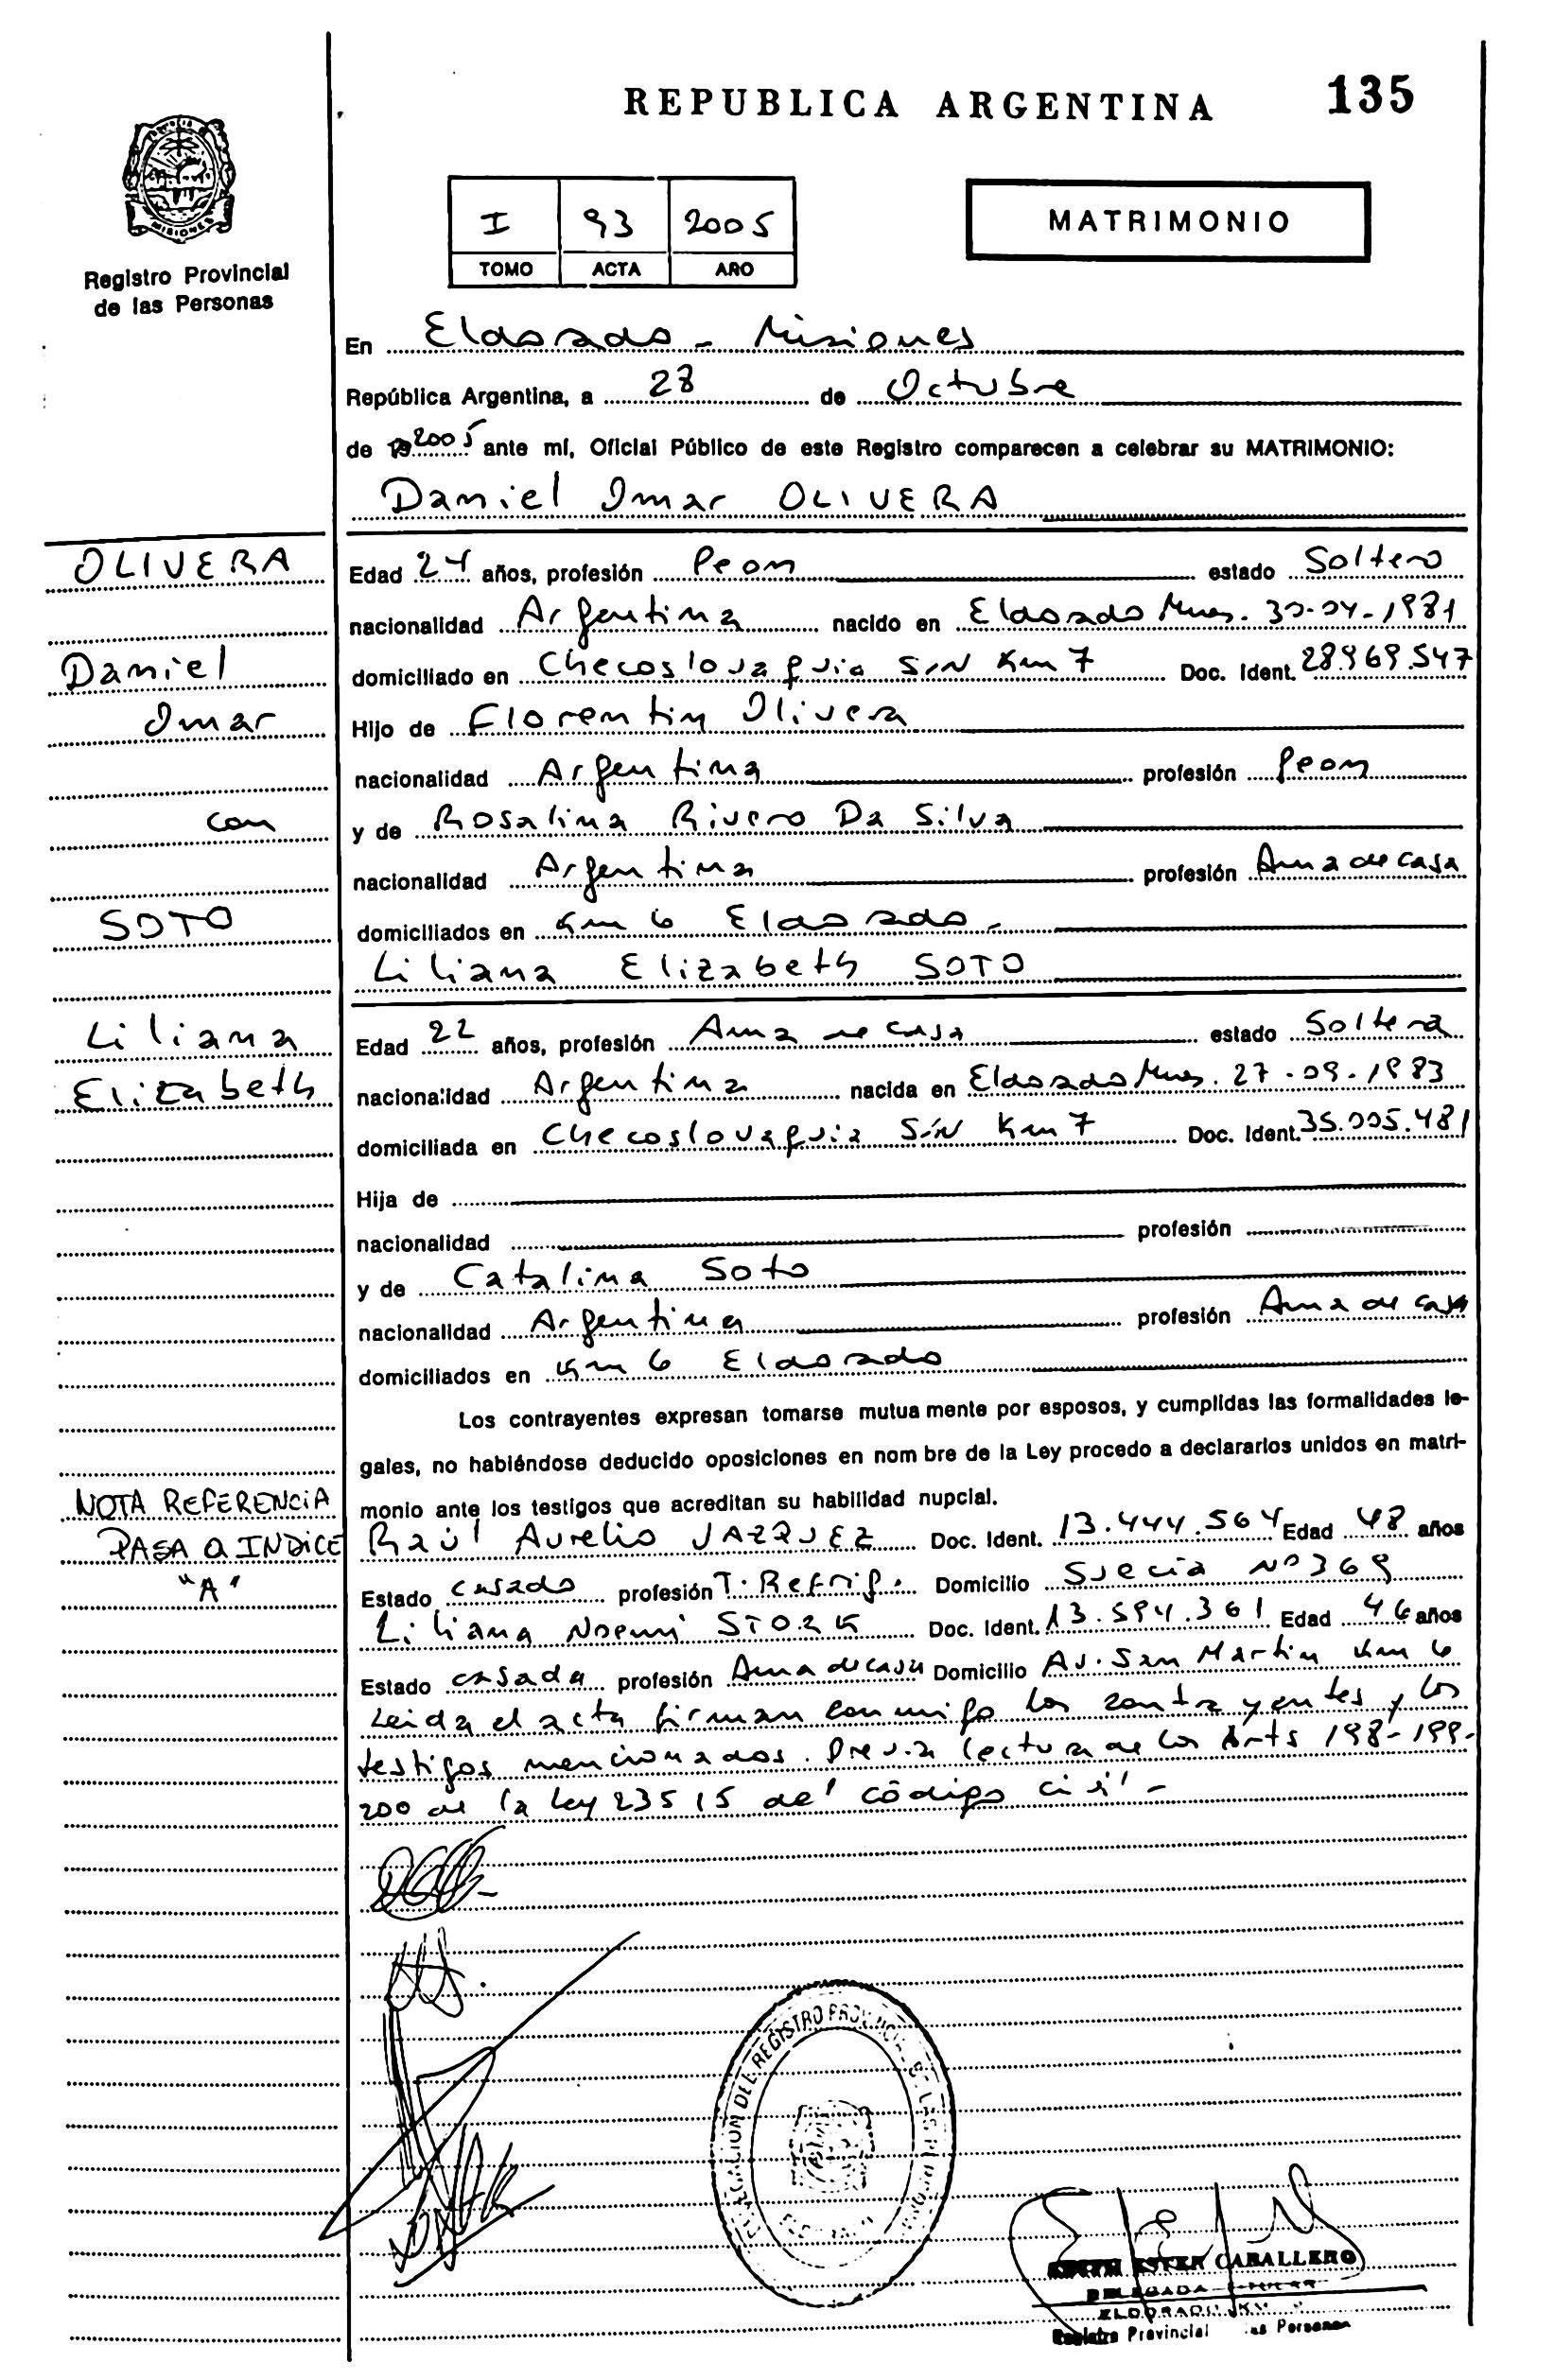 REPUBLICA ARGENTINA 135
MISIONES
Registro Provincial
de las Personas
I 93 2005
TOMO ACTA AÑO
MATRIMONIO
En Eldorado - Misiones
República Argentina, a 28 de Octubre
de 2005 ante mí, Oficial Público de este Registro comparecen a celebrar su MATRIMONIO:
Daniel Omar OLIVERA
OLIVERA
Daniel
Omar
con
SOTO
Liliana
Elizabeth
Edad 24 años, profesión Peon estado Soltero
nacionalidad Argentina nacido en Eldorado Mnes. 30-04-1981
domiciliado en Checoslovaquia S/N Km 7 Doc. Ident. 28.969.547
Hijo de Florentin Olivera
nacionalidad Argentina profesión Peon
y de Rosalina Rivero Da Silva
nacionalidad Argentina profesión Ama de casa
domiciliados en Km 6 Eldorado -
Liliana Elizabeth SOTO
Edad 22 años, profesión Ama de casa estado Soltera
nacionalidad Argentina nacida en Eldorado Mnes. 27-09-1983
domiciliada en Checoslovaquia S/N Km 7 Doc. Ident. 35.005.481
Hija de
nacionalidad profesión
y de Catalina Soto
nacionalidad Argentina profesión Ama de casa
domiciliados en Km 6 Eldorado
Los contrayentes expresan tomarse mutuamente por esposos, y cumplidas las formalidades le-
gales, no habiéndose deducido oposiciones en nombre de la Ley procedo a declararlos unidos en matri-
monio ante los testigos que acreditan su habilidad nupcial.
NOTA REFERENCIA
PASA A INDICE
"A"
Raúl Aurelio VAZQUEZ Doc. Ident. 13.444.564 Edad 48 años
Estado casado profesión T. Refrig. Domicilio Suecia Nº 369
Liliana Noemi STORK Doc. Ident. 13.594.361 Edad 46 años
Estado casada profesión Ama de casa Domicilio Av. San Martin Km 6
Leida el acta firman conmigo los contrayentes y los
testigos mencionados. Previa lectura de los Arts 198-199-
200 de la ley 23515 del código civil -
DELEGACION DEL REGISTRO PROVINCIAL DE LAS PERSONAS
ESTER CABALLERO
DELEGADA TITULAR
ELDORADO KM
Registro Provincial de las Personas